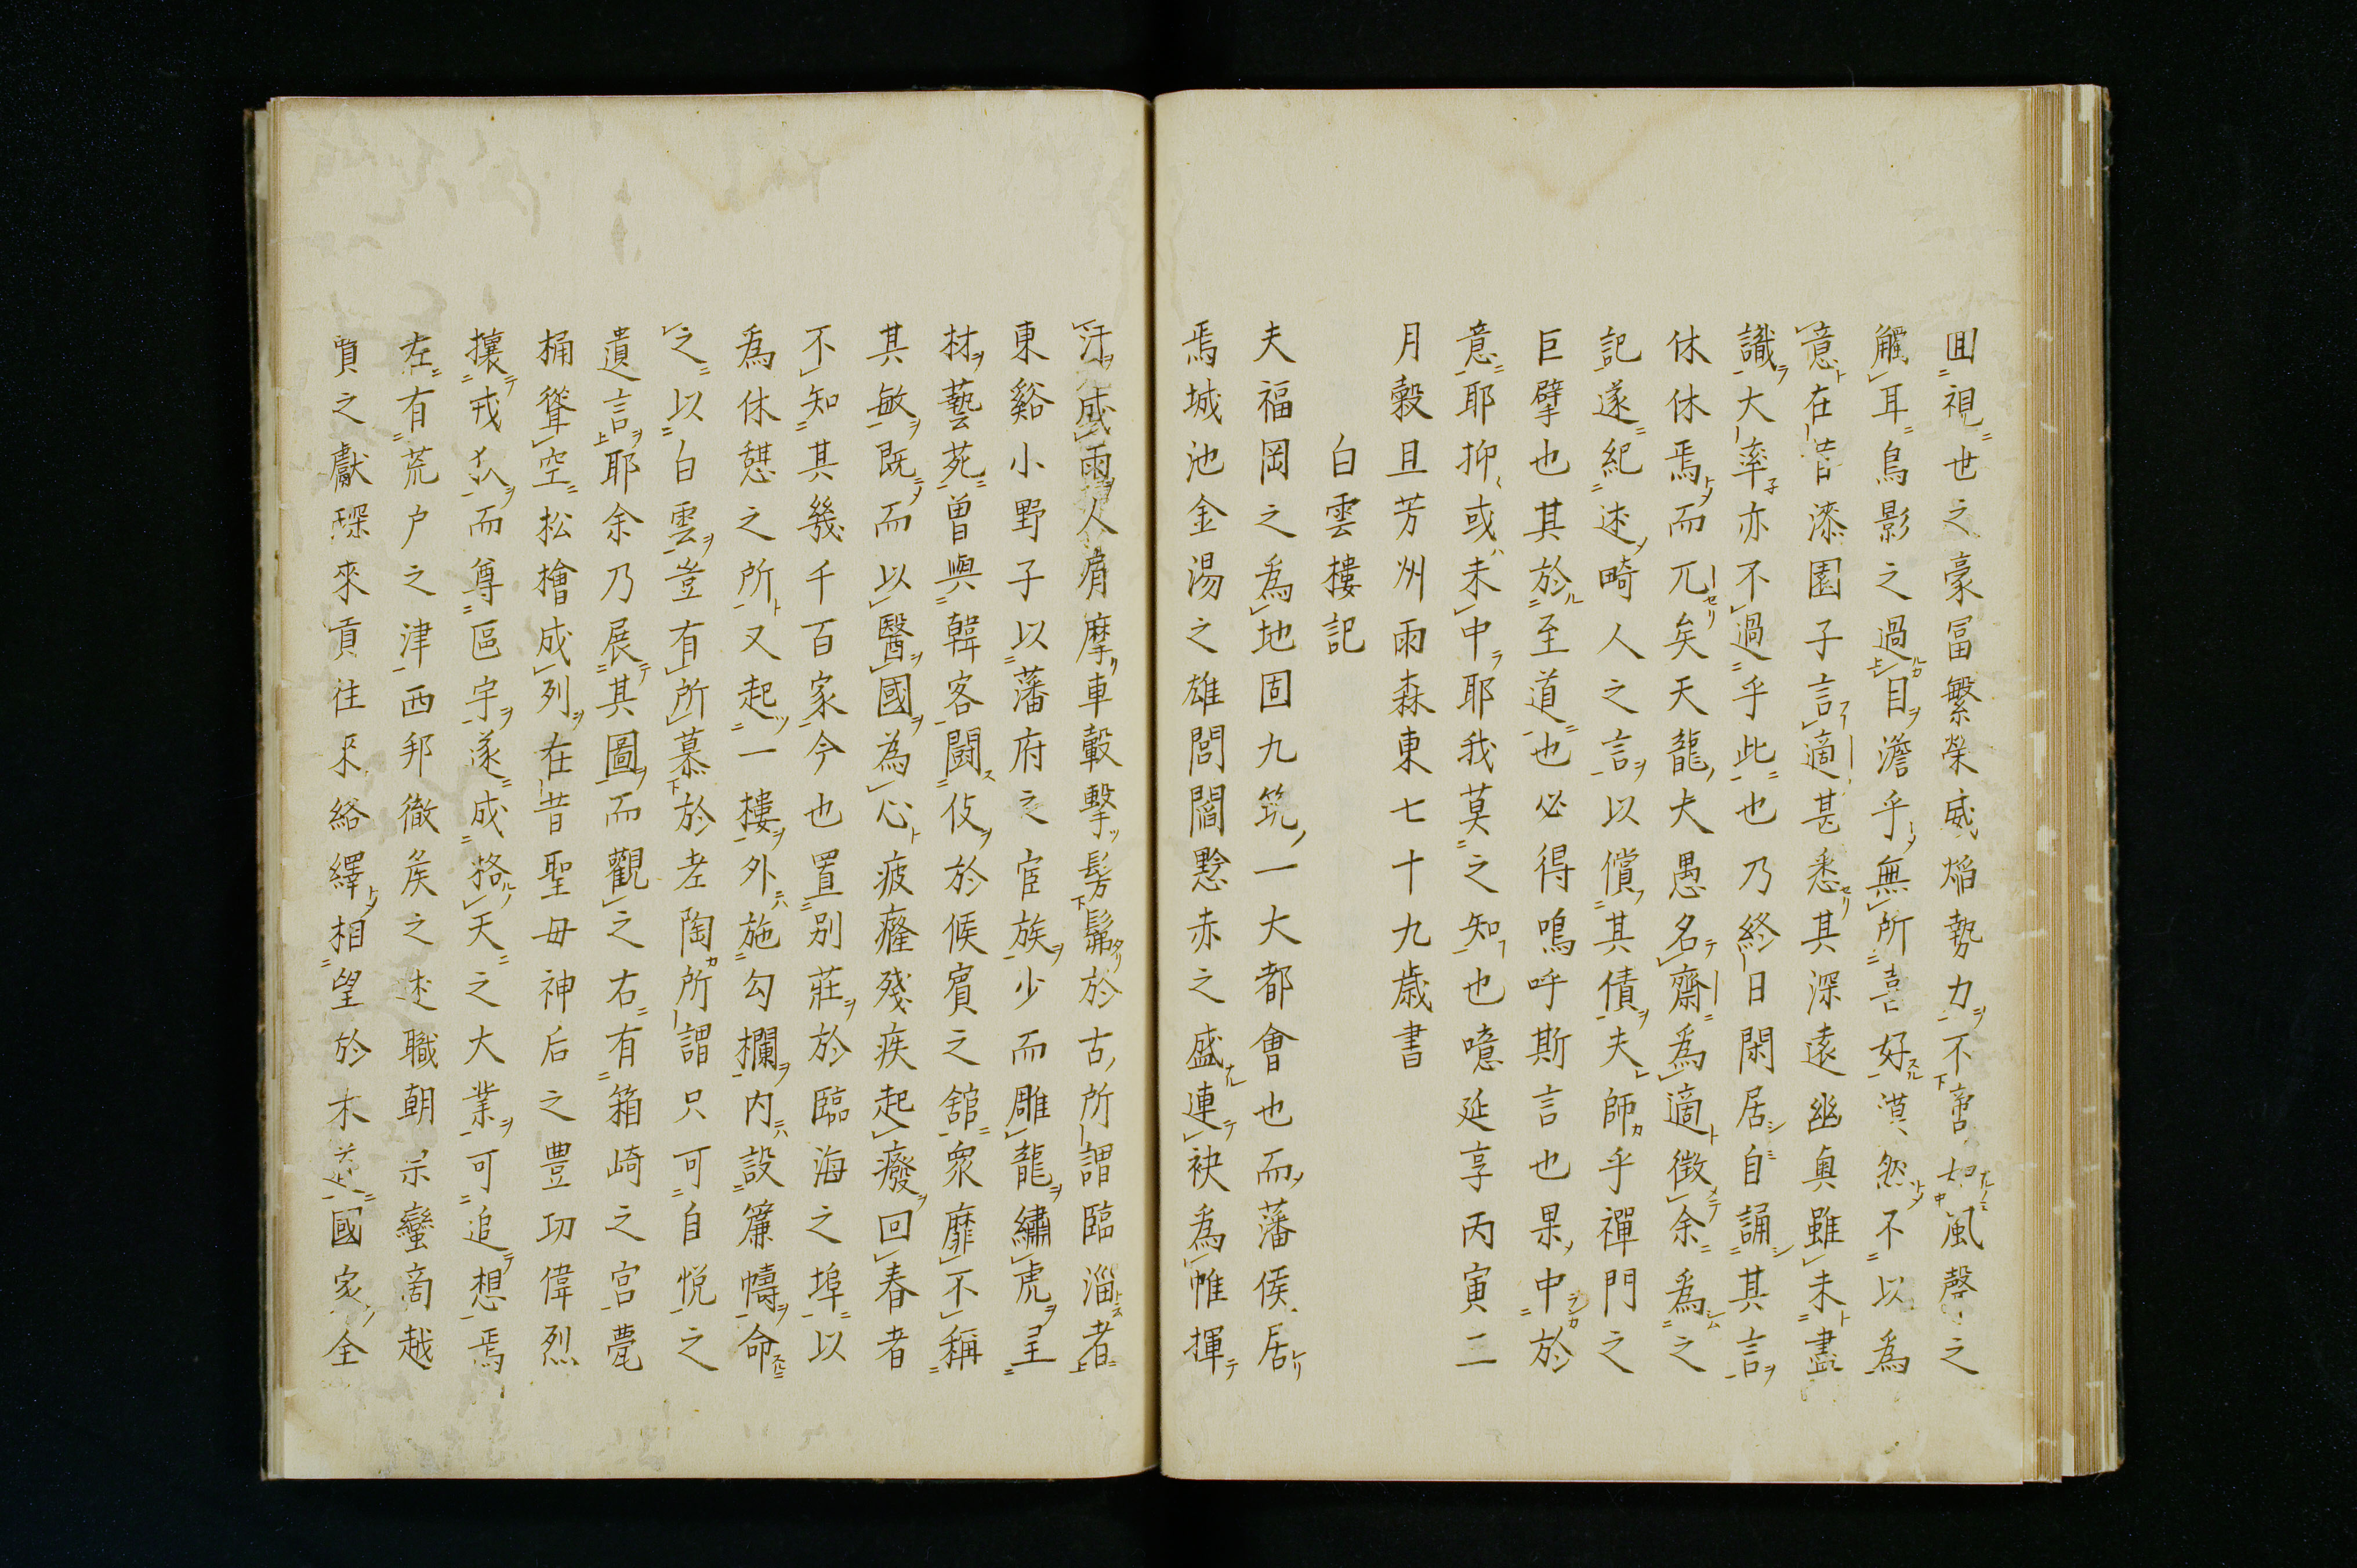 囬視世之豪冨繁榮威焔勢力不啻如風聲之
觸耳鳥影之過目澹乎無所喜好漠然不以為
意在昔漆園子言適甚悉其深遠幽奥雖未盡
識大率亦不過乎此也乃終日閑居自誦其言
休休焉而兀矣天龍夫愚名齋為適徴余為之
記遂紀述畸人之言以償其債夫師乎禪門之
巨擘也其於至道也必得鳴呼斯言也果中於
意耶抑或未中耶我莫之知也噫延享丙寅二
月穀且芳州雨森東七十九歳書
白雲樓記
夫福岡之為地固九筑一大都會也而藩侯居
焉城池金湯之雄閭閻黔赤之盛連袂為帷揮
汗成雨人肩摩車轂擊髣髴於古所謂臨淄者
東谿小野子以藩府之宦族少而雕龍繡虎呈
材藝苑曽與韓客闘伎於候賓之舘衆靡不稱
其敏既而以醫國為心疲癃殘疾起癈回春者
不知其幾千百家今也置别莊於臨海之埠以
為休憇之所又起一樓外施勾欄内設簾幬命
之以白雲豈有所慕於老陶所謂只可自悦之
遺言耶余乃展其圖而觀之右有箱崎之宮甍
桶聳空松檜成列在昔聖母神后之豊功偉烈
攘戎狄而尊區宇遂成格天之大業可追想焉
左有荒戸之津西邦徹矦之述職朝示蠻啇越
賈之獻琛來貢往来絡繹相望於木道國家全